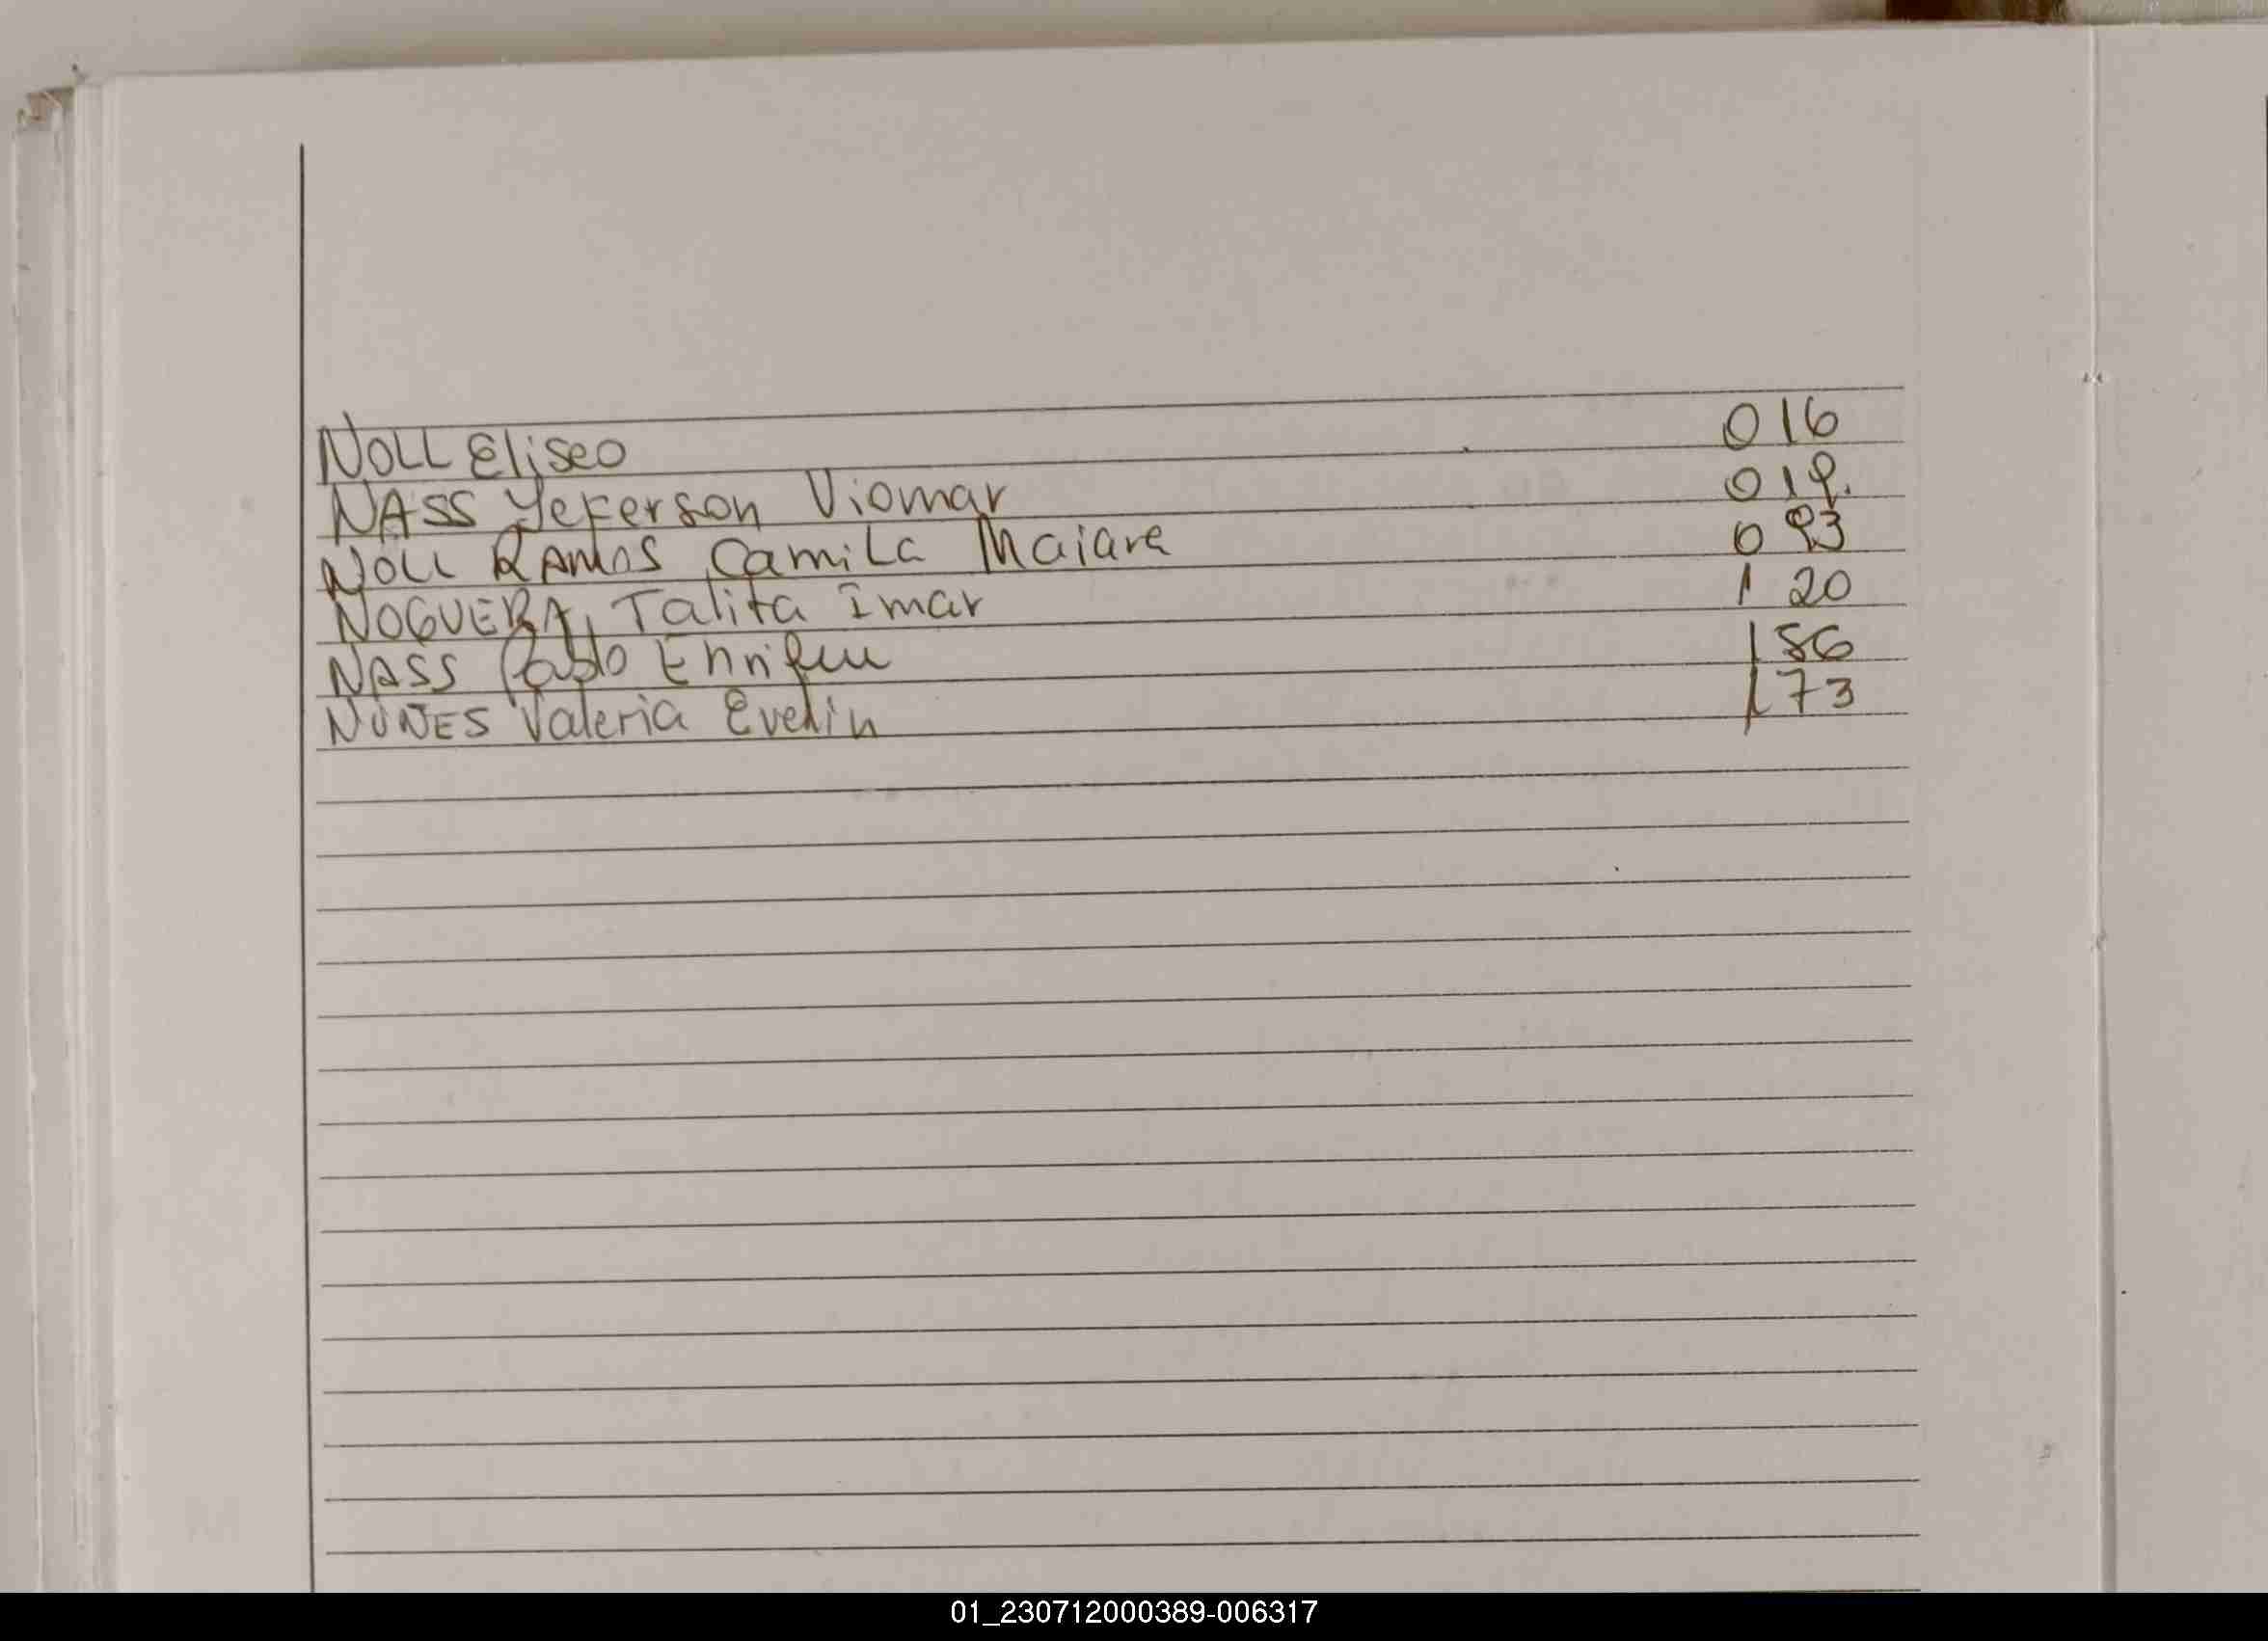 NOLL Eliseo 016
NASS Yeferson Viomar 019.
NOLL RAMOS Camila Maiara 093
NOGUERA, Talita Imar 120
NASS Pablo Enrique 186
NUNES Valeria Evelin 173
01_230712000389-006317